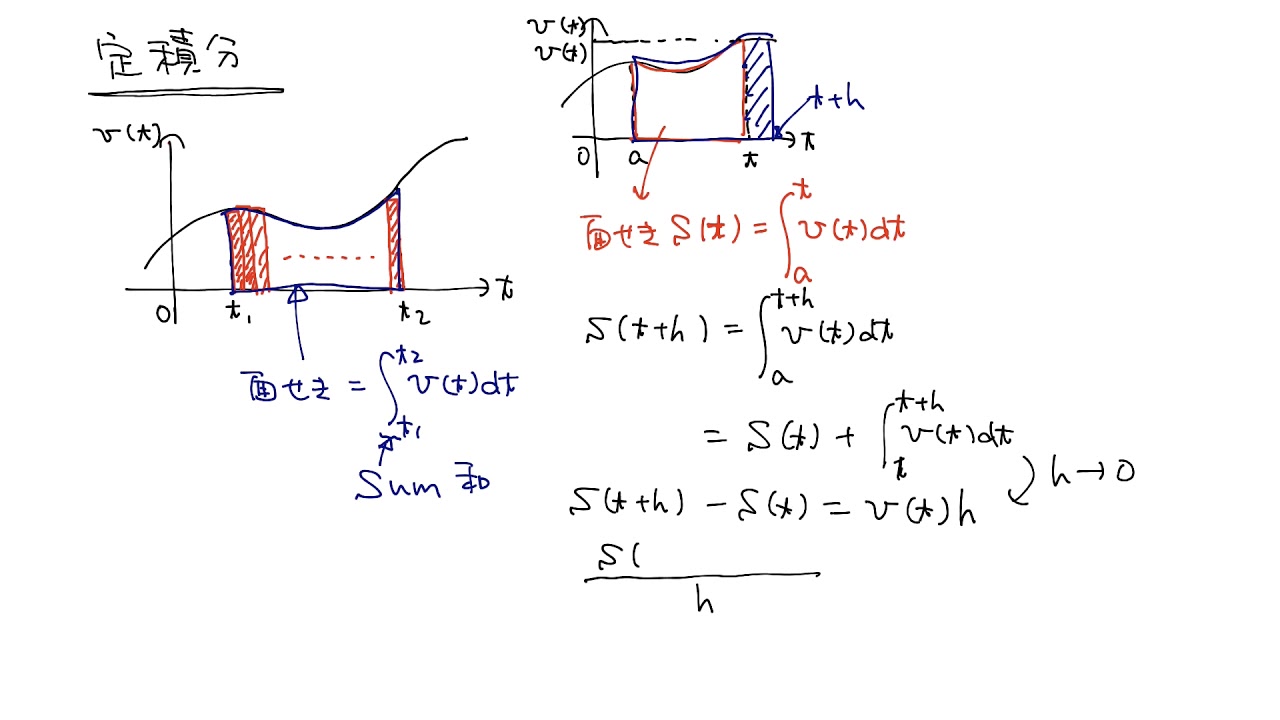 定積分
v(t)
0 t₁ t₂ t
面せき = ∫_{t₁}^{t₂} v(t)dt
Sum 和
v(t)
v(t)
t+h
0 a t t
面せき S(t) = ∫_{a}^{t} v(t)dt
S(t+h) = ∫_{a}^{t+h} v(t)dt
= S(t) + ∫_{t}^{t+h} v(t)dt
h→0
S(t+h) - S(t) = v(t)h
S(
h